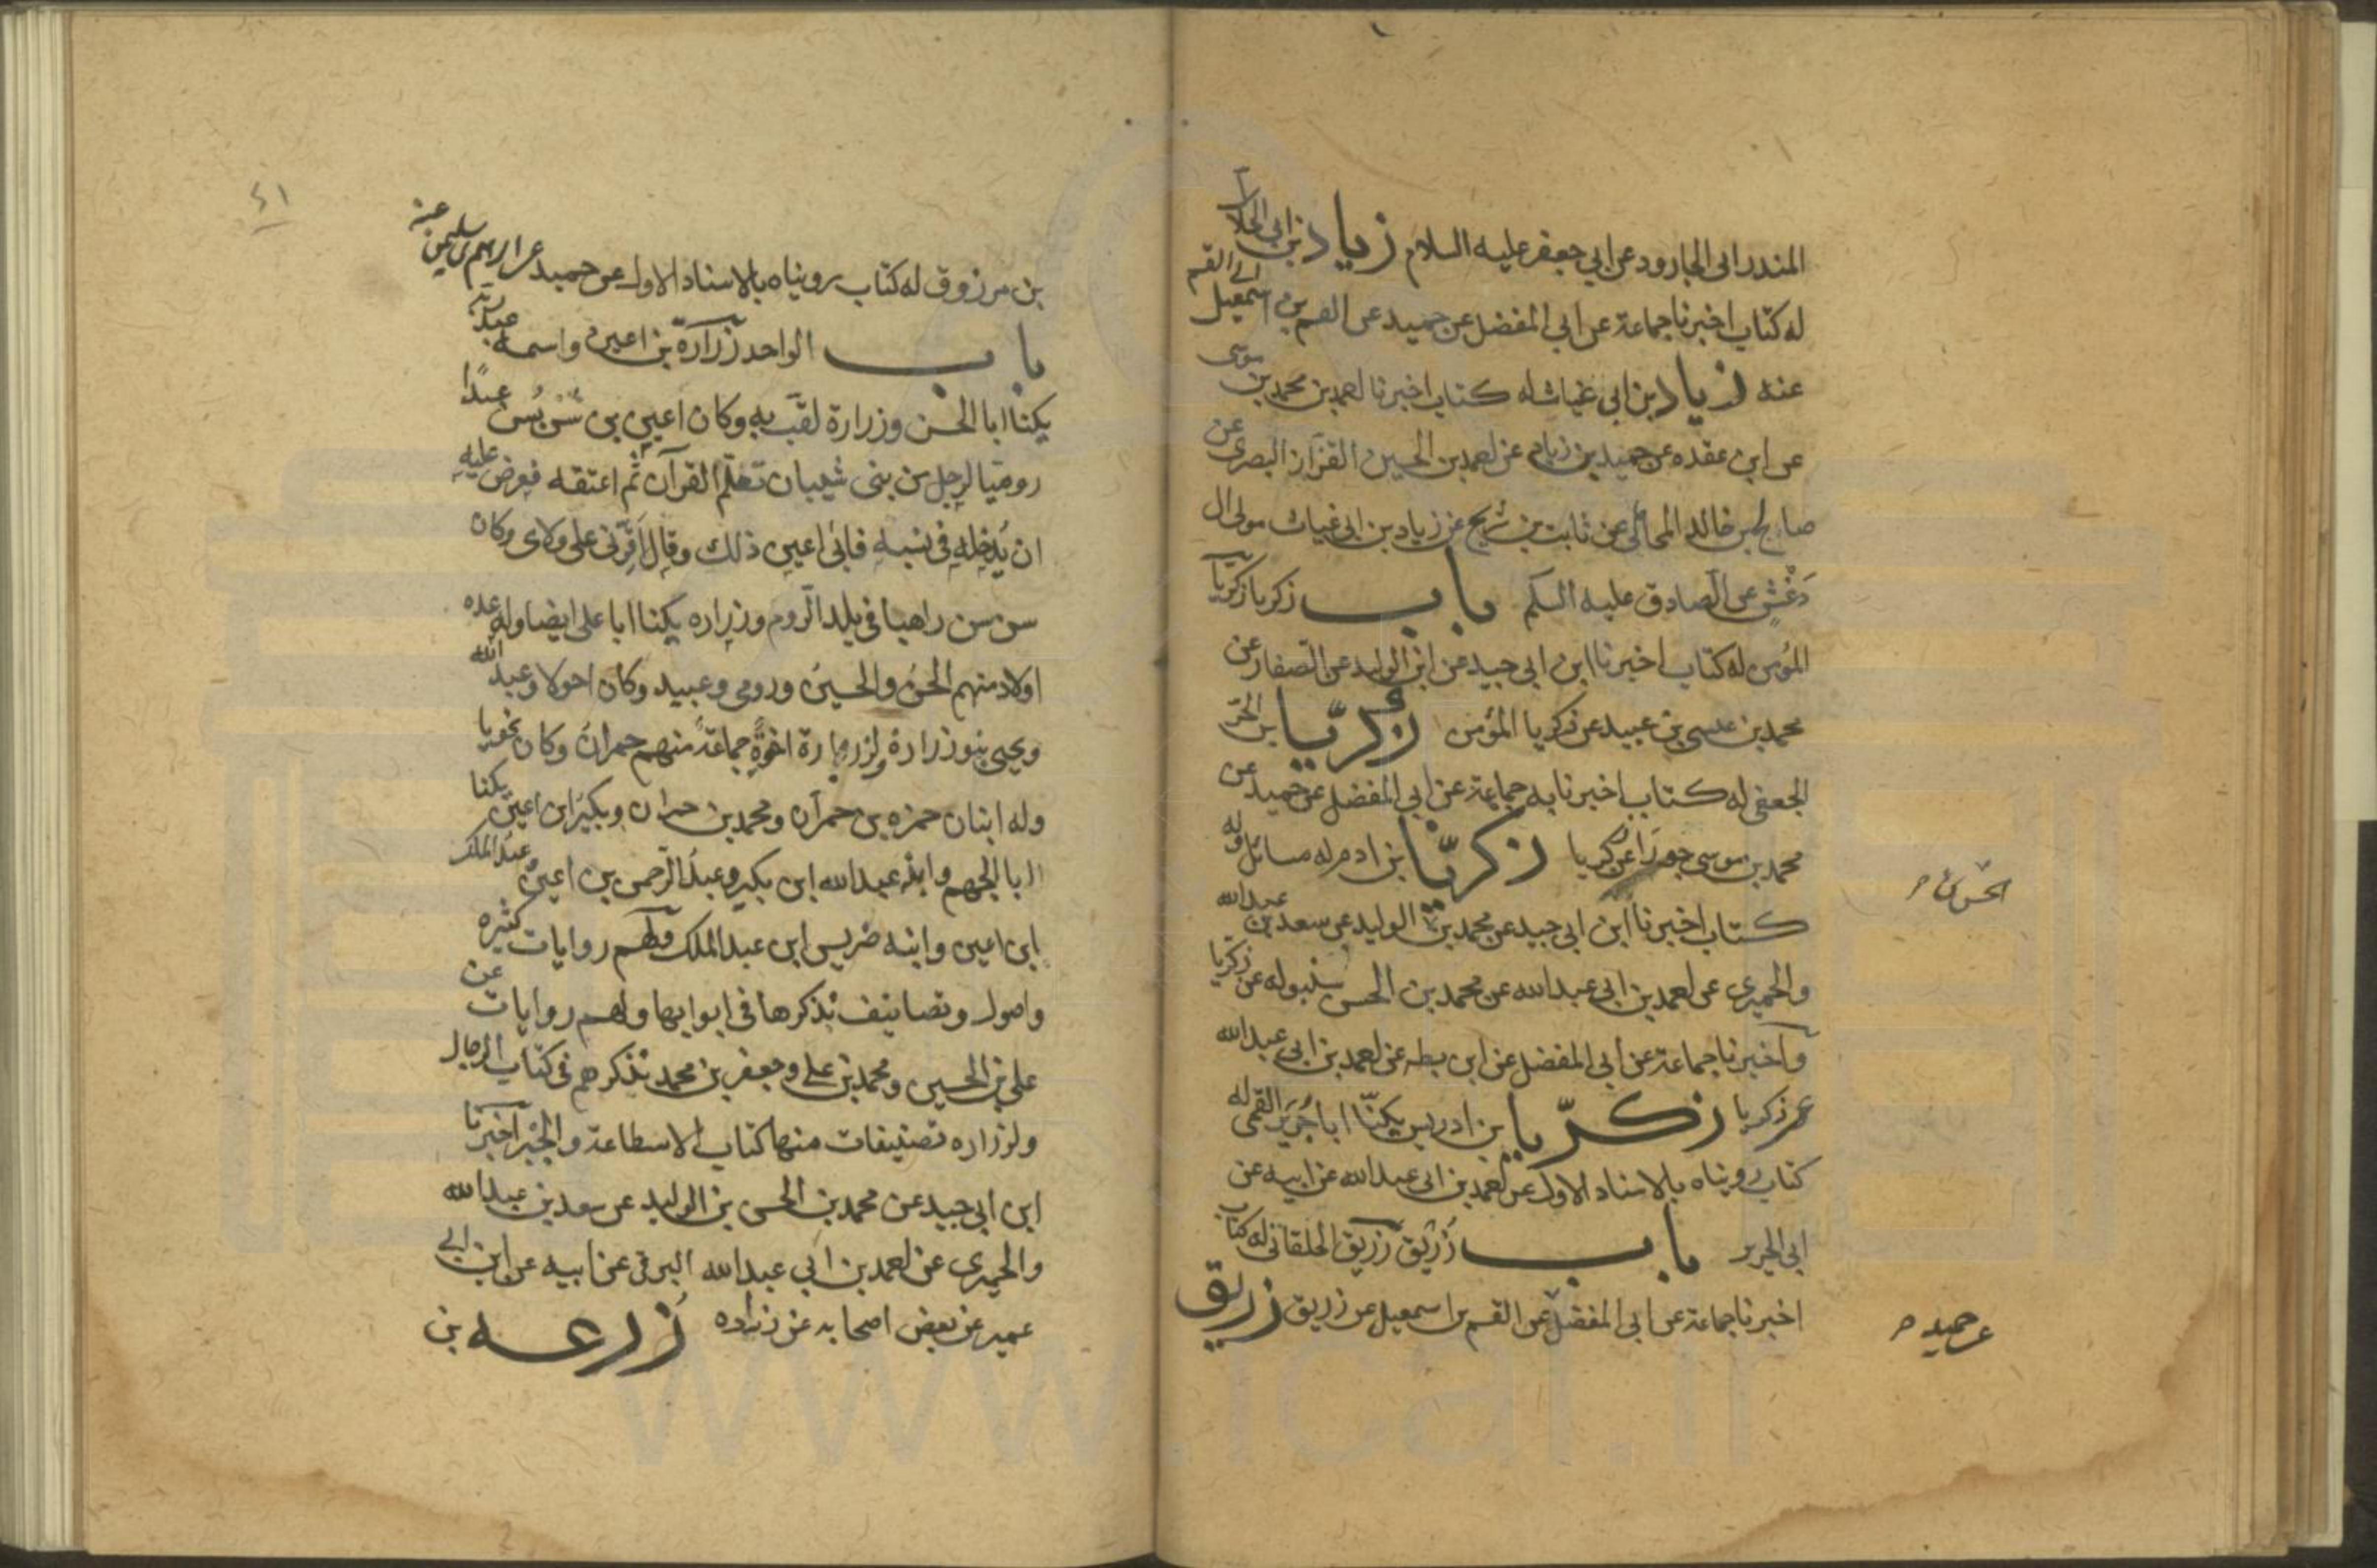 المنذر ابى الجارود عن ابي جعفر عليه السلام زياد بن ابى الحلال
له كتاب اخبرنا جماعة عن ابى المفضل عن حميد عن القسم بن اسمعيل ابى القسم
عنه زياد بن ابى غياث له كتاب اخبرنا احمد بن محمد بن موسى
عن ابن عقده عن حميد بن زياد عن احمد بن الحسين القزّاز البصرى عن
صالح بن خالد المحاملى عن ثابت بن شريح عن زياد بن ابى غياث مولى ال
دَغْشٍ عن الصادق عليه السلم باب زكريا زكريا
المؤمن له كتاب اخبرنا ابن ابى جيد عن ابن الوليد عن الصفار عن
محمد بن عيسى بن عبيد عن زكريا المؤمن زكريّا بن الحرّ
الجعفى له كتاب اخبرنا به جماعة عن ابى المفضل عن حميد عن
محمد بن موسى خوراء عن زكريا زكريّا بن ادم له مسائل وله
كتاب اخبرنا ابن ابى جيد عن محمد بن الوليد عن سعد بن عبدالله
الحسن بن
والحميرى عن احمد بن ابى عبدالله عن محمد بن الحسن شنبوله عن زكريا
واخبرنا جماعة عن ابى المفضل عن ابن بطه عن احمد بن ابى عبدالله
عن زكريا زكريّا بن ادريس يكنّا ابا جُرَير القمى له
كتاب رويناه بالاسناد الاول عن احمد بن ابى عبدالله عن ابيه عن
ابى الجرير باب زُريق زُريق الخلقانى له كتاب
اخبرنا جماعة عن ابى المفضل عن القسم بن اسمعيل عن زريق زريق
عن حميد
٤١
بن مرزوق له كتاب رويناه بالاسناد الاول عن حميد عن ابرهيم بن سليمن عنه
باب الواحد زُرارة بن اعين واسمه عبد ربّه
يكنا ابا الحسن وزرارة لقّب به وكان اعين بن سُنْسُن عبدًا
روميّا لرجل من بنى شيبان تعلّم القرآن ثم اعتقه فعرض عليه
ان يُدخله فى نسبه فابى اعين ذلك وقال اَقرّنى على ولاى وكان
سن سن راهبا فى بلد الروم وزراره يكنا ابا على ايضا وله عده
اولاد منهم الحسنُ والحسينُ ورومى وعبيد وكان احولا وعبدالله
ويحيى بنو زرارة ولزرارة اخوةٌ جماعةٌ منهم حمرانُ وكان نحويا
وله ابنان حمزه بن حمران ومحمد بن حمران وبكيرُ ابن اعين يكنا
ابا الجهم وابنه عبدالله ابن بكير وعبدُ الرّحمن بن اعين وعبدُ الملك
ابن اعين وابنه ضريس ابن عبد الملك ولهم روايات كثيره
واصول وتصانيف نذكرها فى ابوابها ولهم روايات عن
على بن الحسين ومحمد بن على وجعفر بن محمد نذكرهم فى كتاب الرجال
ولزراره تصنيفات منها كتاب الاسطاعة والجَبْر اخبرنا
ابن ابى جيد عن محمد بن الحسن بن الوليد عن سعد بن عبدالله
والحميرى عن احمد بن ابى عبدالله البرقى عن ابيه عن ابن ابى
عمير عن بعض اصحابه عن زراره زُرعه بن
www.ical.ir